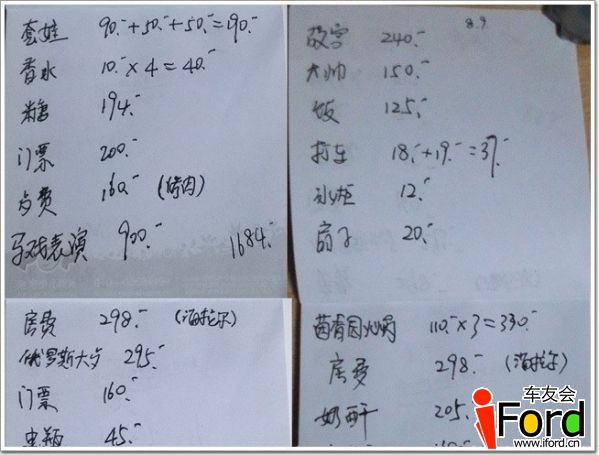 套娃 90.- + 50.- + 50.- = 190.-
香水 10.- × 4 = 40.-
糖 194.-
门票 200.-
餐费 160.- (烤肉)
马戏表演 900.- 1684.-
8.9
240.-
大帅 150.-
饭 125.-
打车 18.- + 19.- = 37.-
冰柜 12.-
扇子 20.-
房费 298.- (海拉尔)
俄罗斯大 295.-
门票 160.-
45.-
火锅 110.- × 3 = 330.-
房费 298.- (海拉尔)
奶 205.-
车友会
iFord
www.iford.cn